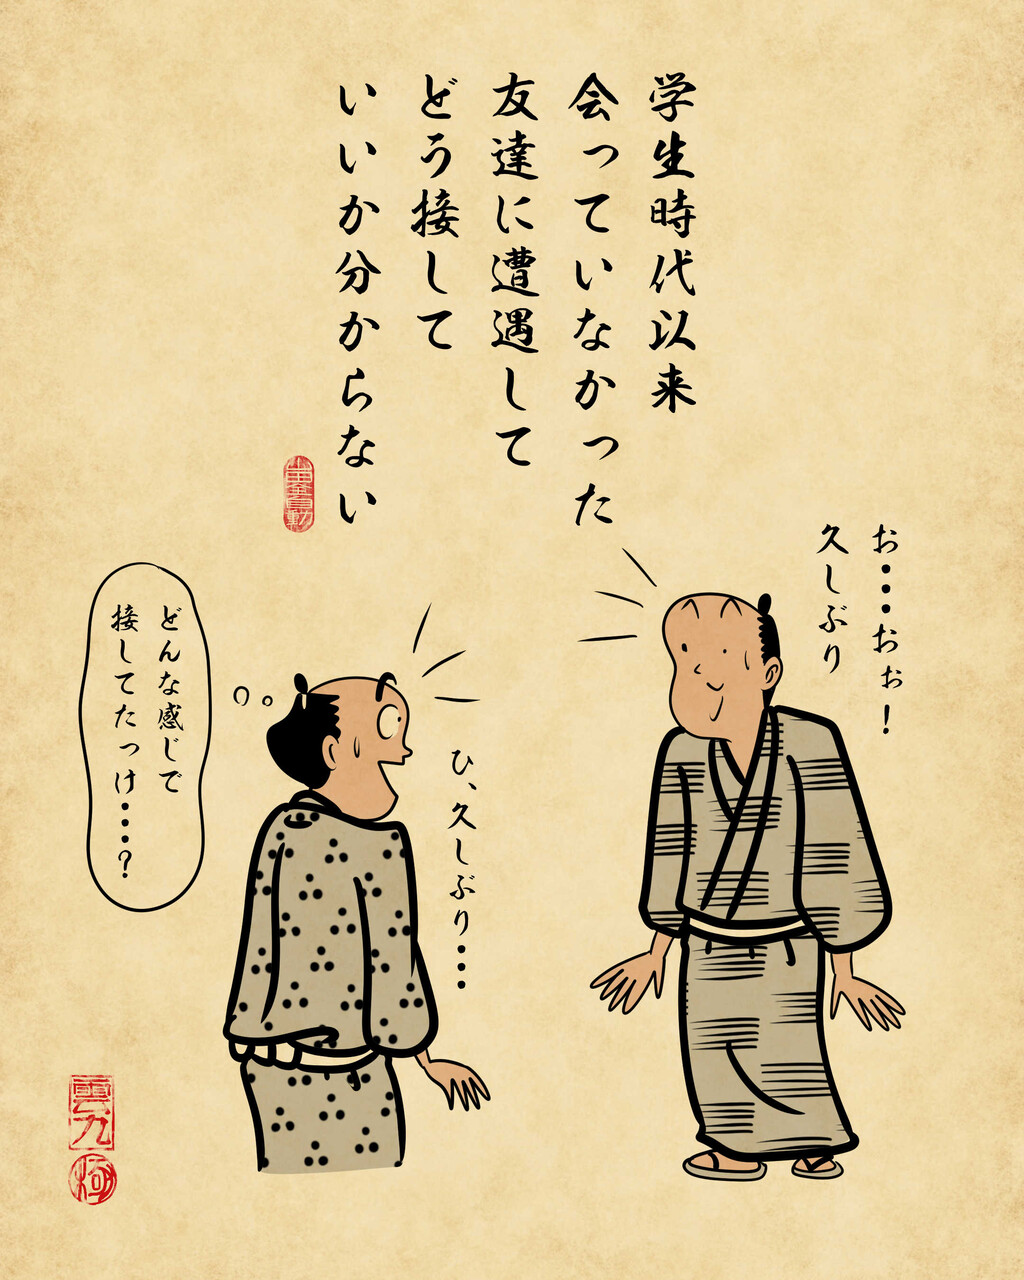 学生時代以来
会っていなかった
友達に遭遇して
どう接して
いいか分からない
お・・・おぉ！
久しぶり
ひ、久しぶり・・・
どんな感じで
接してたっけ・・・？